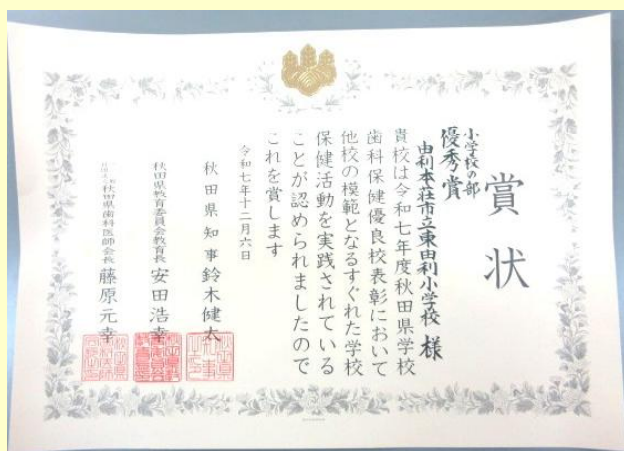 賞状
小学校の部
優秀賞
由利本荘市立東由利小学校 様
貴校は令和七年度秋田県学校
歯科保健優良校表彰において
他校の模範となるすぐれた学校
保健活動を実践されている
ことが認められましたので
これを賞します
令和七年十二月六日
秋田県知事 鈴木健太
秋田県教育委員会教育長 安田浩幸
秋田県歯科医師会長 藤原元幸